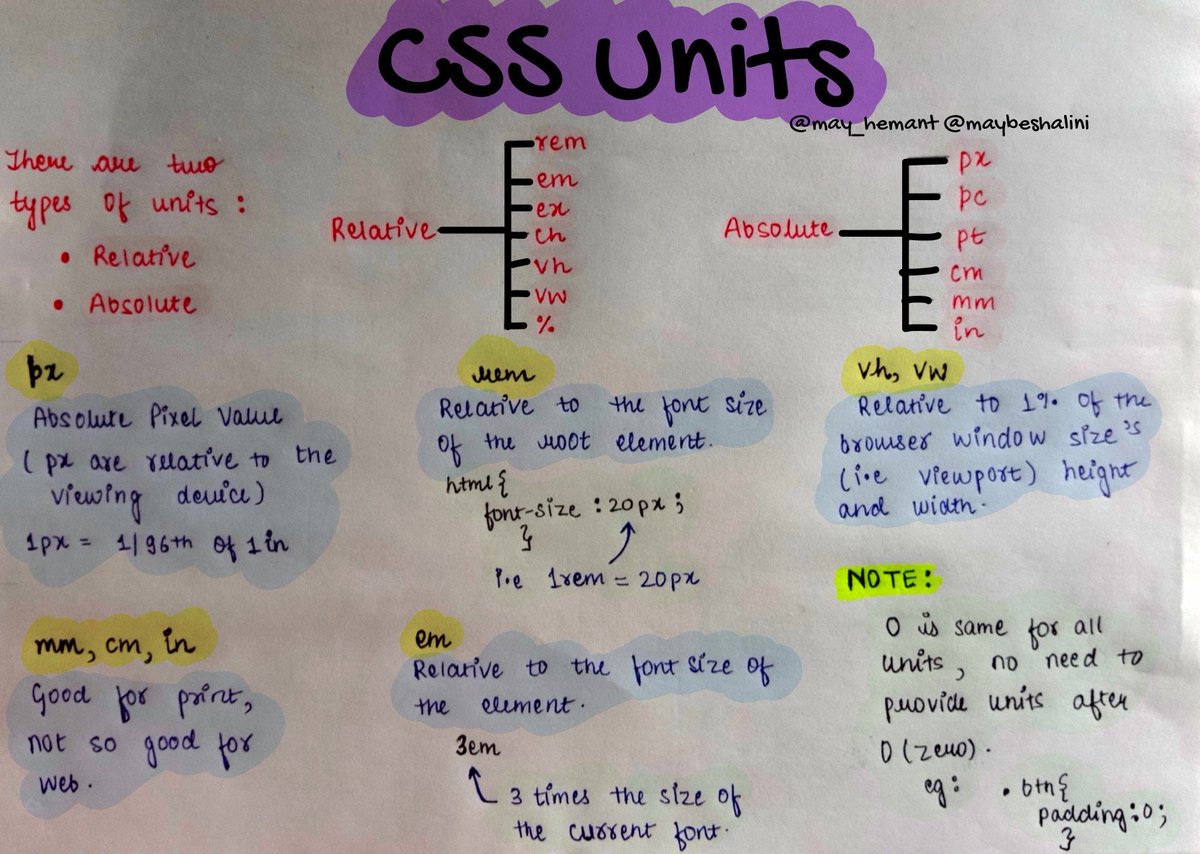 CSS Units
@may_hemant @maybeshalini
There are two
types of units :
• Relative
• Absolute
Relative
rem
em
ex
ch
vh
vw
%
Absolute
px
pc
pt
cm
mm
in
px
Absolute Pixel Value
( px are relative to the
viewing device)
1px = 1/96th of 1in
rem
Relative to the font size
of the root element.
html{
font-size : 20px ;
}
i.e 1rem = 20px
vh, vw
Relative to 1% of the
browser window size's
(i.e viewport) height
and width.
mm, cm, in
Good for print,
not so good for
web.
em
Relative to the font size of
the element.
3em
3 times the size of
the current font.
NOTE:
0 is same for all
units, no need to
provide units after
0 (zero).
eg: .btn{
padding:0;
}